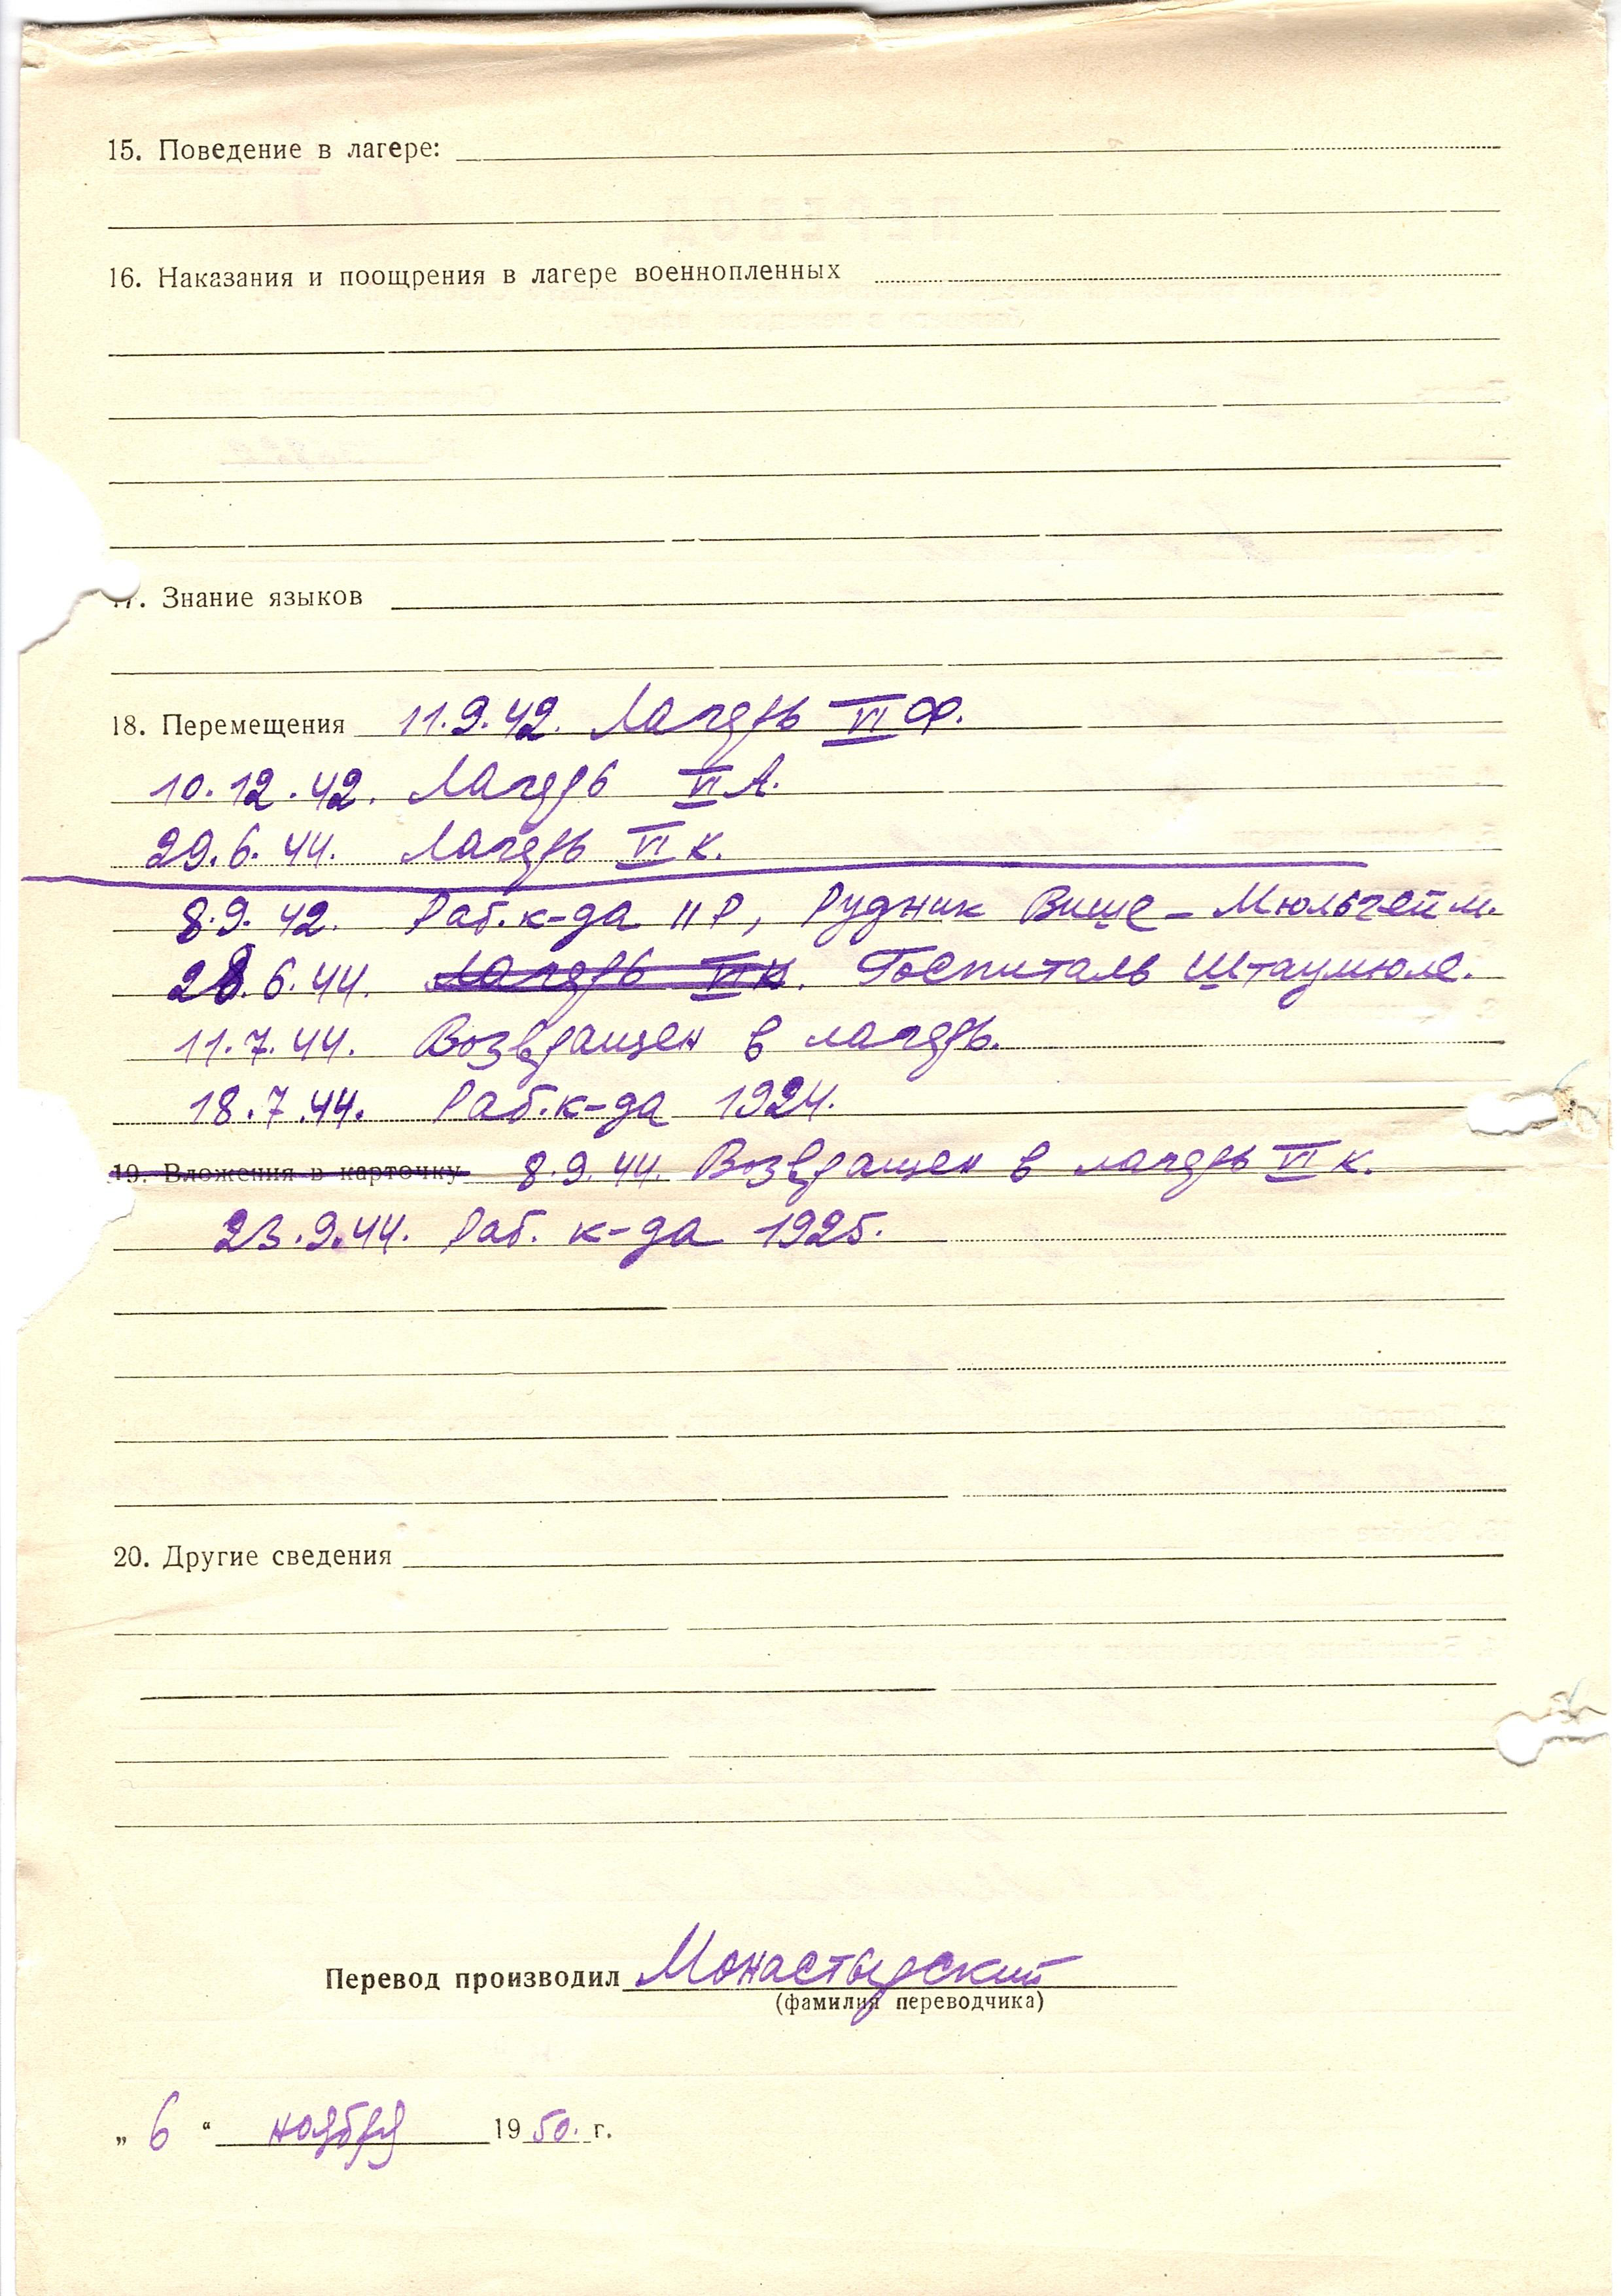 15. Поведение в лагере:
16. Наказания и поощрения в лагере военнопленных
17. Знание языков
18. Перемещения 11.9.42. Лагерь VI Ф.
10.12.42. Лагерь VI А.
29.6.44. Лагерь VI К.
8.9.42. Раб. к-да 11 Р, Рудник Више - Мюльгейм.
28.6.44. Лагерь VI К. Госпиталь Штаумюле.
11.7.44. Возвращен в лагерь.
18.7.44. Раб. к-да 1924.
19. Вложения в карточку 8.9.44. Возвращен в лагерь VI К.
23.9.44. Раб. к-да 1925.
20. Другие сведения
Перевод производил Монастырский
(фамилия переводчика)
„ 6 “ ноября 1950. г.